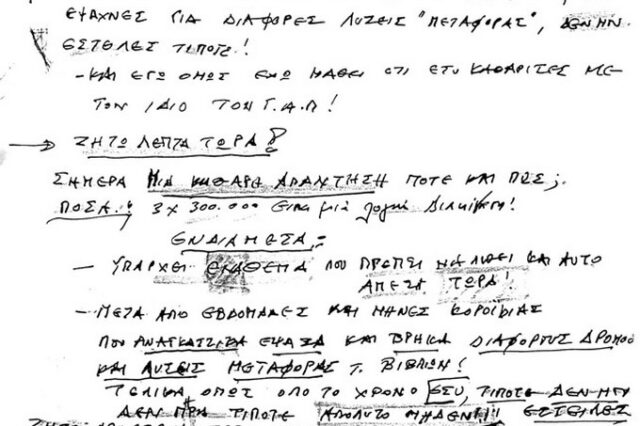 ΕΨΑΧΝΕΣ ΓΙΑ ΔΙΑΦΟΡΕΣ ΛΥΣΕΙΣ "ΜΕΤΑΦΟΡΑΣ", ΔΕΝ ΜΗΝ
ΕΣΤΕΛΕΣ ΤΙΠΟΤΕ!
- ΚΑΙ ΕΓΩ ΟΜΩΣ ΕΧΩ ΜΑΘΕΙ ΟΤΙ ΕΣΥ ΚΑΘΑΡΙΣΕΣ ΜΕ
ΤΟΝ ΙΔΙΟ ΤΟΝ Γ.Α.Π!
→ ΖΗΤΩ ΛΕΠΤΑ ΤΩΡΑ!
ΣΗΜΕΡΑ ΜΙΑ ΚΑΘΑΡΗ ΑΠΑΝΤΗΣΗ ΠΟΤΕ ΚΑΙ ΠΩΣ;
ΠΟΣΑ! 3 x 300.000 Είναι μιά λογική Διακίνηση!
ΕΝΔΙΑΜΕΣΑ:
- ΥΠΑΡΧΕΙ ΕΝΑ ΘΕΜΑ ΠΟΥ ΠΡΕΠΕΙ ΝΑ ΛΥΘΕΙ ΚΑΙ ΑΥΤΟ
ΑΜΕΣΑ ΤΩΡΑ!
- ΜΕΤΑ ΑΠΟ ΕΒΔΟΜΑΔΕΣ ΚΑΙ ΜΗΝΕΣ ΚΟΡΟΙΔΙΑΣ
ΠΟΥ ΑΝΑΓΚΑΣΤΙΚΑ ΕΨΑΞΑ ΚΑΙ ΒΡΗΚΑ ΔΙΑΦΟΡΟΥΣ ΔΡΟΜΟΥΣ
ΚΑΙ ΛΥΣΕΙΣ ΜΕΤΑΦΟΡΑΣ Τ. ΒΙΒΛΙΩΝ!
ΤΕΛΙΚΑ ΟΠΩΣ ΟΛΟ ΤΟ ΧΡΟΝΟ ΕΣΥ, ΤΙΠΟΤΕ ΔΕΝ ΜΟΥ
ΔΕΝ ΤΙΠΟΤΕ ΑΠΟΛΥΤΟ ΜΗΔΕΝ!! ΕΣΤΕΙΛΕΣ